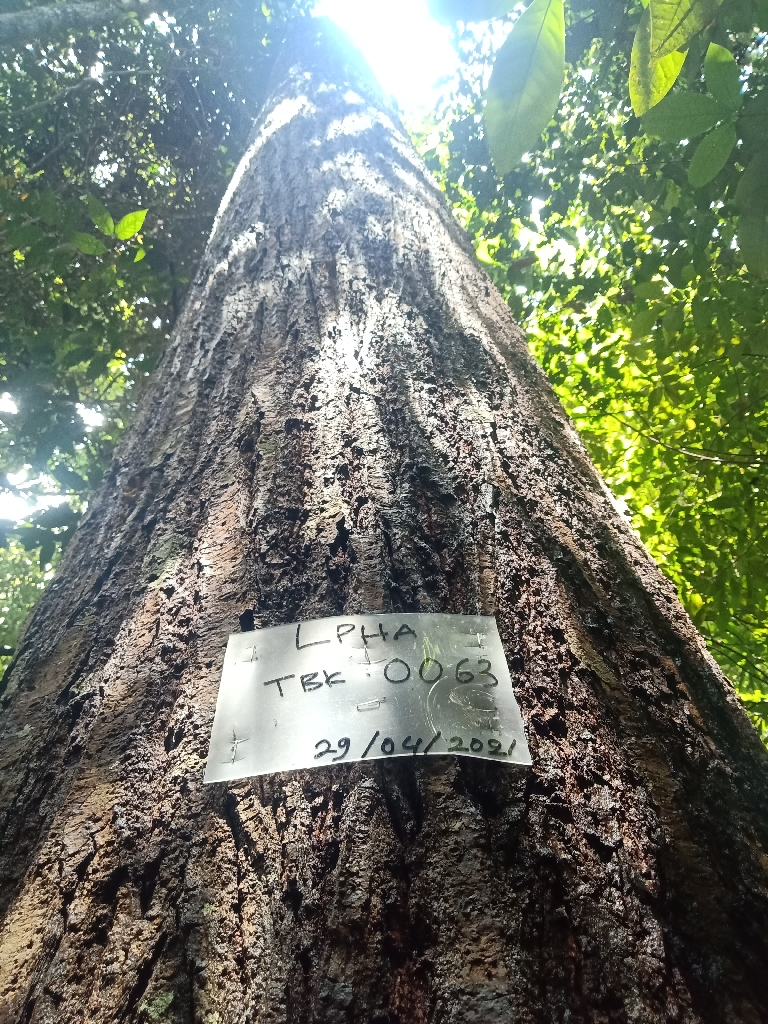 LPHA
TBK 0063
29/04/2021